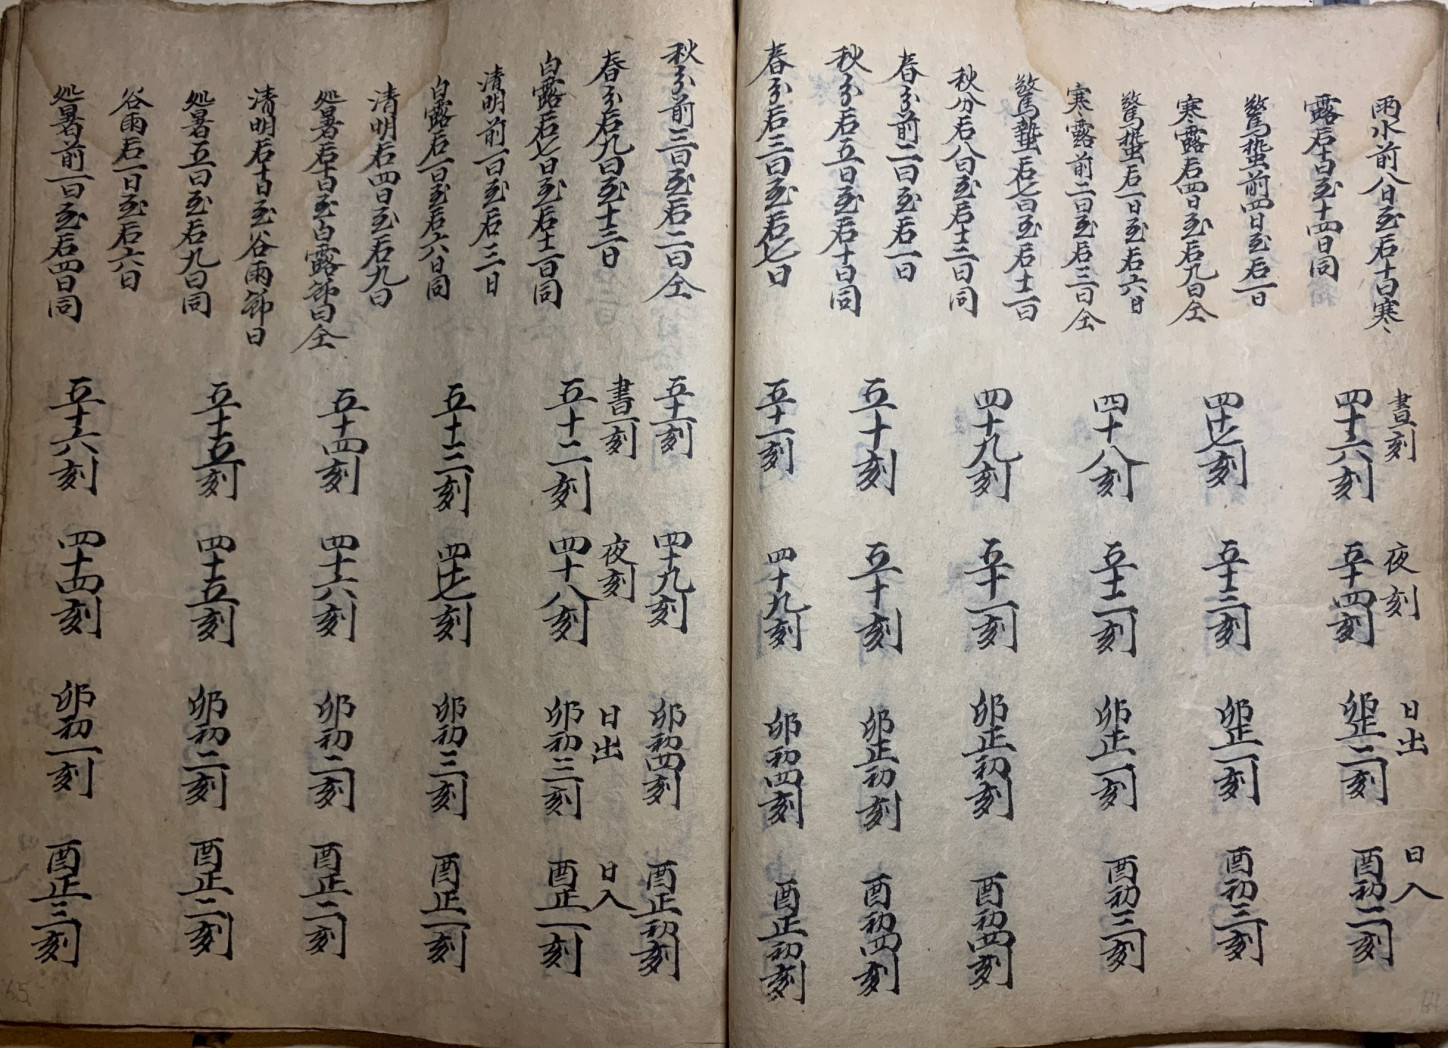 雨水前八日至后十日寒
露后十日至十四日同
晝刻 夜刻 日出 日入
四十六刻 五十四刻 卯正二刻 酉初二刻
驚蟄前四日至后一日
寒露后四日至后九日仝
四十七刻 五十三刻 卯正一刻 酉初三刻
驚蟄后一日至后六日
寒露前二日至后三日仝
四十八刻 五十二刻 卯正一刻 酉初三刻
驚蟄后七日至后十一日
秋分后八日至后十三日同
四十九刻 五十一刻 卯正初刻 酉初四刻
春分前二日至后一日
秋分后五日至后十日同
五十刻 五十刻 卯正初刻 酉初四刻
春分后三日至后七日
五十一刻 四十九刻 卯初四刻 酉正初刻
秋分前三日至后二日仝
五十一刻 四十九刻 卯初四刻 酉正初刻
春分后九日至十三日
晝刻 夜刻 日出 日入
白露后七日至后十一日同
五十二刻 四十八刻 卯初三刻 酉正一刻
清明前一日至后三日
白露后一日至后六日同
五十三刻 四十七刻 卯初三刻 酉正一刻
清明后四日至后九日
処暑后十日至白露節日仝
五十四刻 四十六刻 卯初二刻 酉正二刻
清明后十日至谷雨節日
処暑五日至后九日同
五十五刻 四十五刻 卯初二刻 酉正二刻
谷雨后一日至后六日
処暑前一日至后四日同
五十六刻 四十四刻 卯初一刻 酉正三刻
65